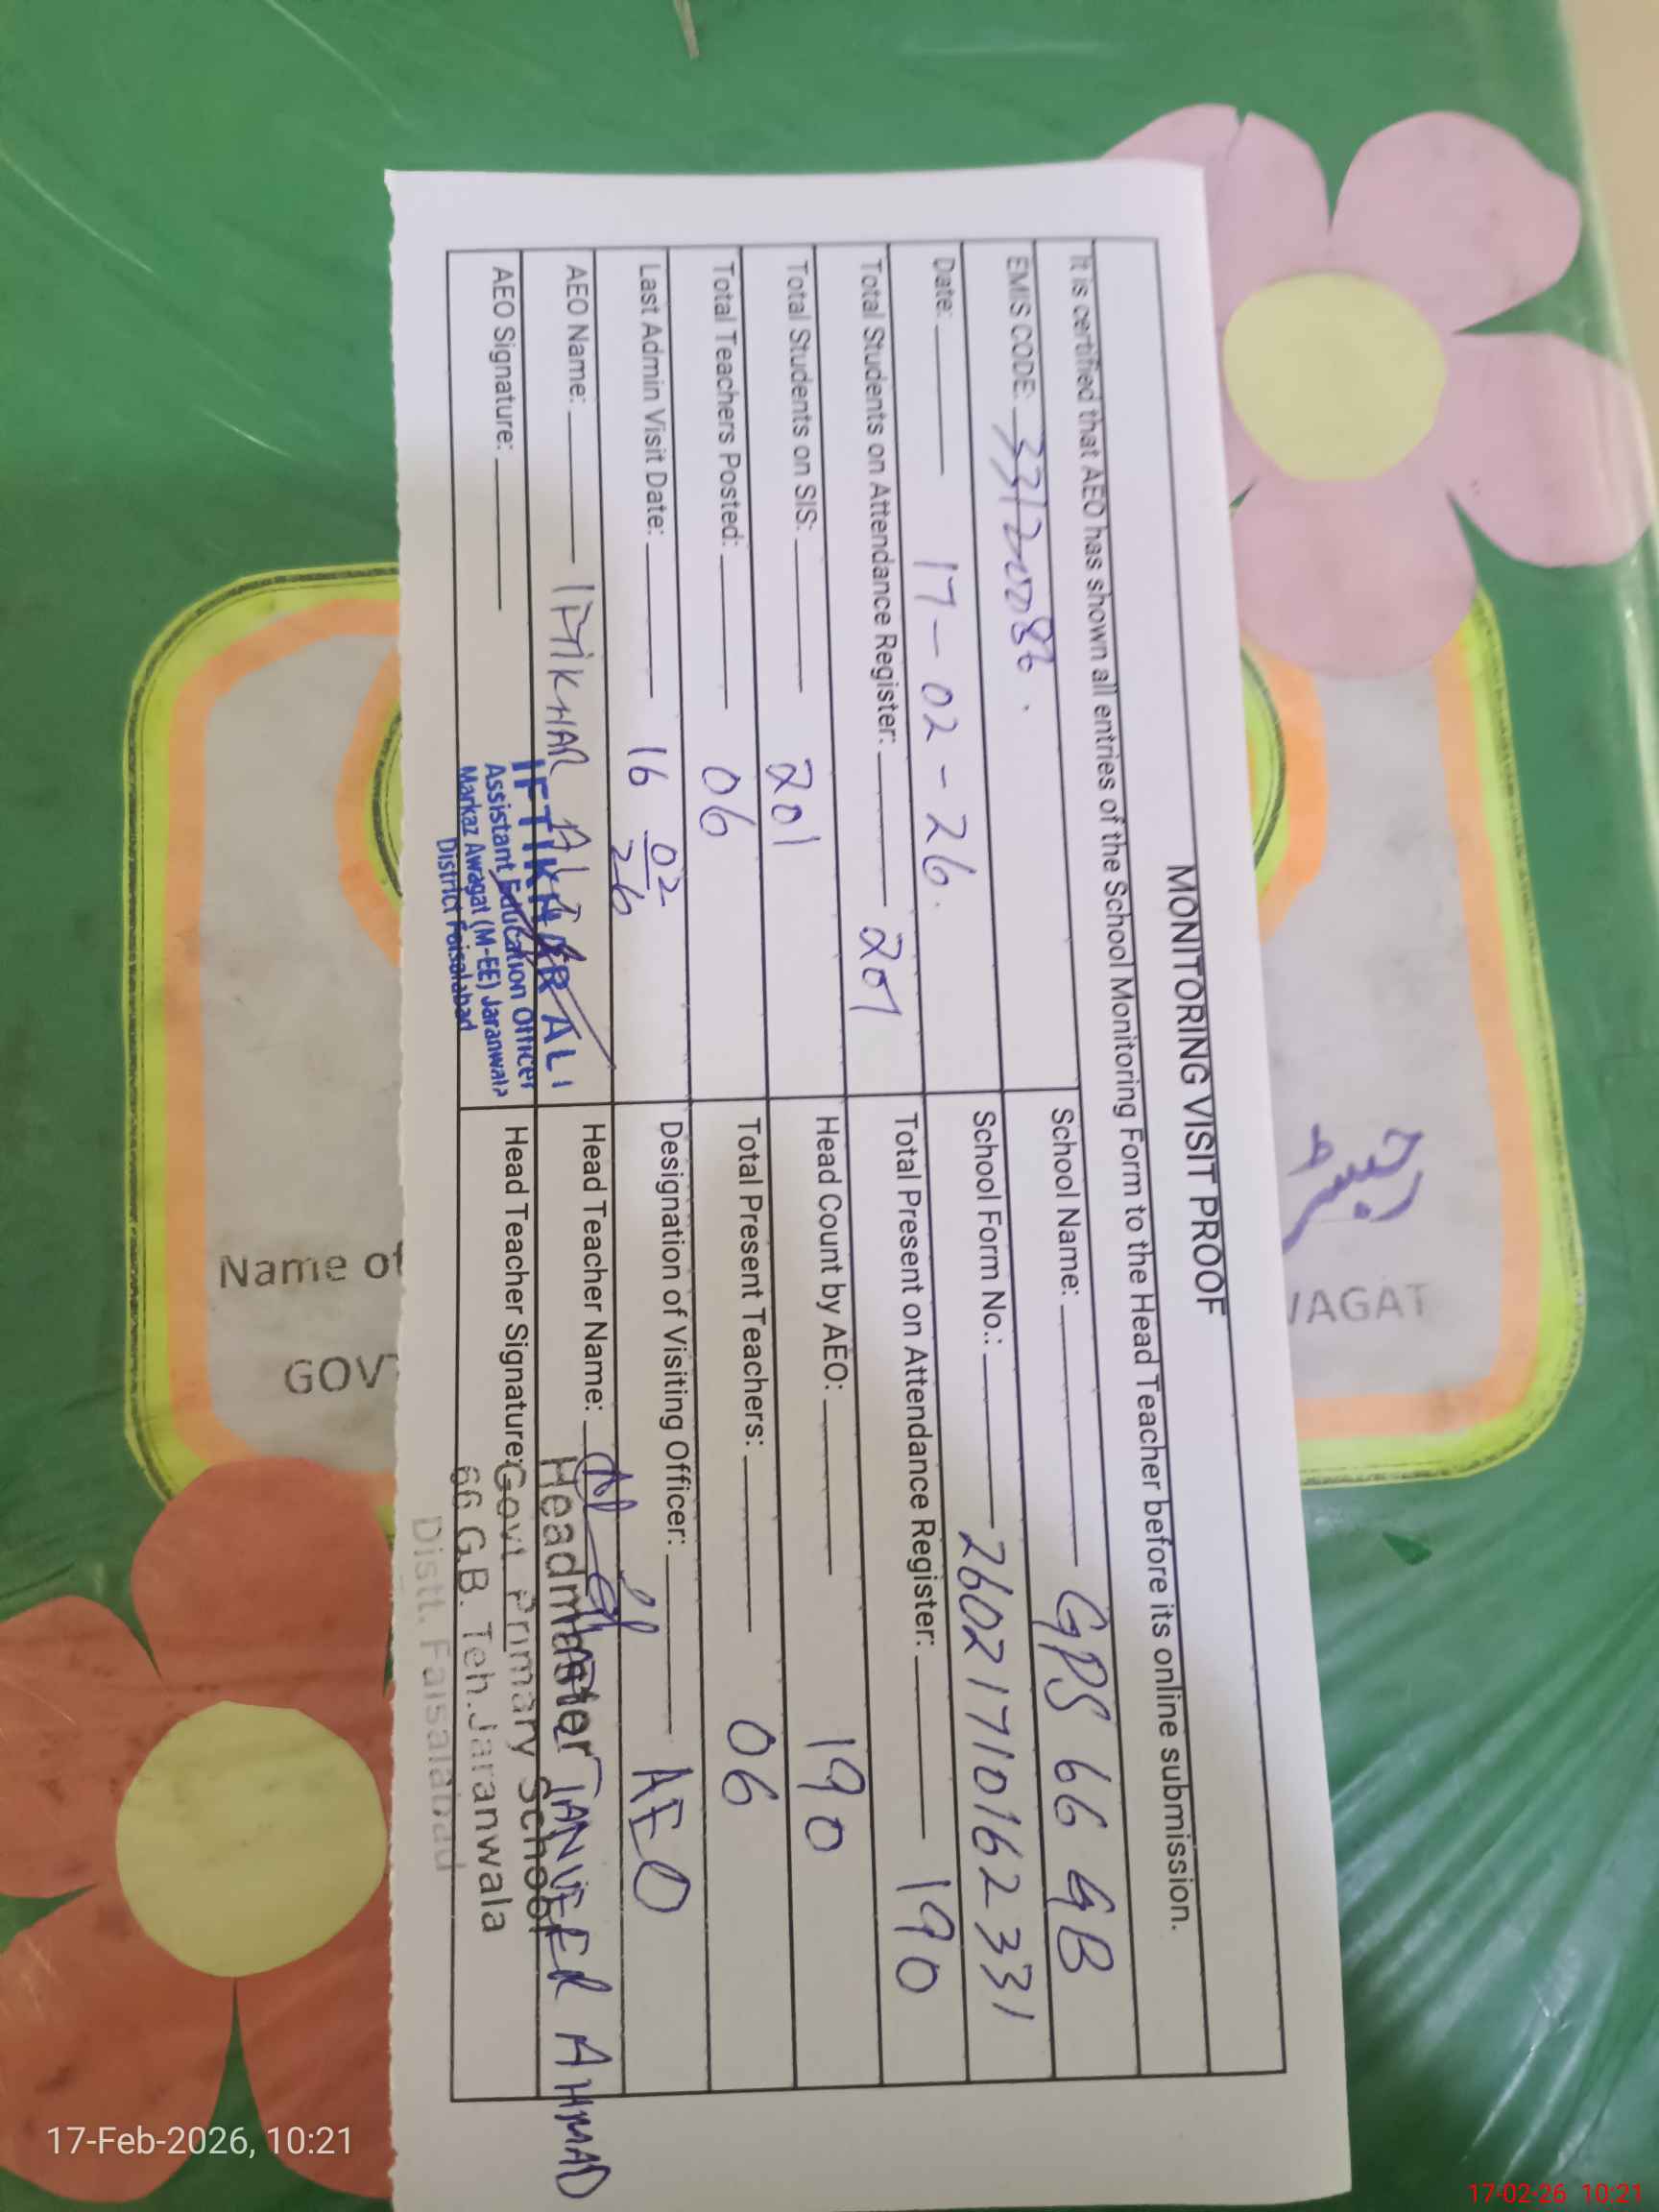 MONITORING VISIT PROOF
It is certified that AEO has shown all entries of the School Monitoring Form to the Head Teacher before its online submission.
EMIS CODE: 33120086. School Name: GPS 66 GB
Date: 17-02-26. School Form No.: 26021710162331
Total Students on Attendance Register: 201 Total Present on Attendance Register: 190
Total Students on SIS: 201 Head Count by AEO: 190
Total Teachers Posted: 06 Total Present Teachers: 06
Last Admin Visit Date: 16 02 26 Designation of Visiting Officer: AEO
AEO Name: IFTIKHAR ALI Head Teacher Name: TANVEER AHMAD
AEO Signature: Head Teacher Signature:
IFTIKHAR ALI
Assistant Education Officer
Markaz Awagat (M-EE) Jaranwala
District Faisalabad
Headmaster
Govt. Primary School
66 G.B. Teh. Jaranwala
Distt. Faisalabad
AGAT
Name of
GOV
17-Feb-2026, 10:21
17-02-26 10:21